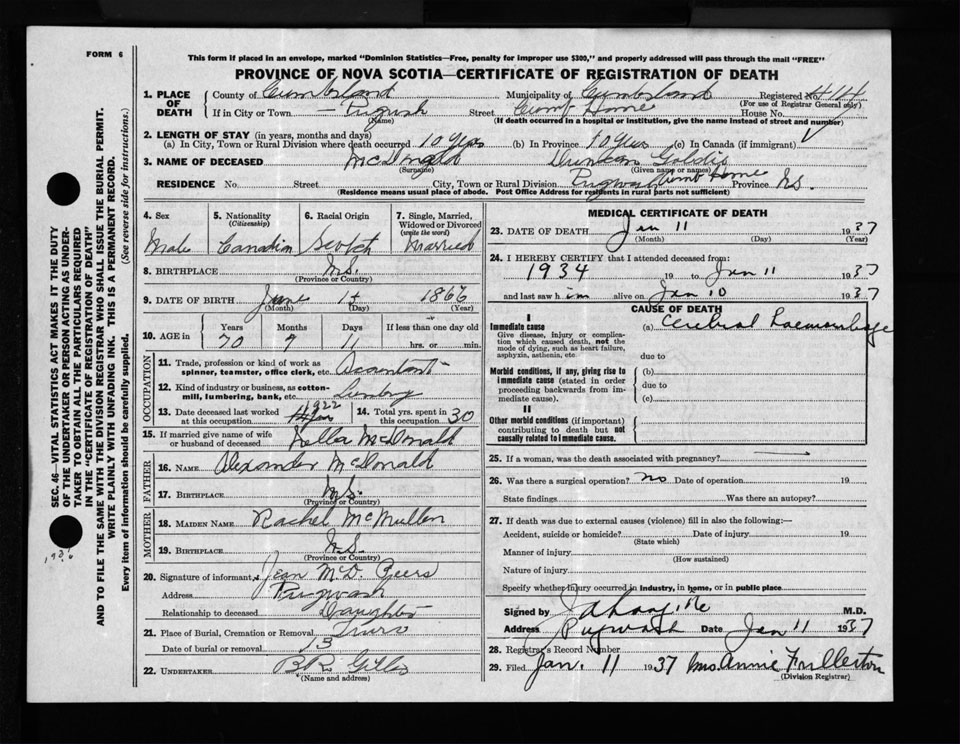 FORM 6
This form if placed in an envelope, marked "Dominion Statistics—Free, penalty for improper use $300," and properly addressed will pass through the mail "FREE"
PROVINCE OF NOVA SCOTIA—CERTIFICATE OF REGISTRATION OF DEATH
1. PLACE OF DEATH County of Cumberland Municipality of Cumberland Registered No. 414
(For use of Registrar General only)
If in City or Town Pugwash Street Comb Home House No.
(Name) (If death occurred in a hospital or institution, give the name instead of street and number)
2. LENGTH OF STAY (in years, months and days)
(a) In City, Town or Rural Division where death occurred 10 Years (b) In Province 70 Years (c) In Canada (if immigrant)
3. NAME OF DECEASED McDonald Duncan
(Surname) (Given name or names)
RESIDENCE No. Street City, Town or Rural Division Pugwash Comb Home Province N.S.
(Residence means usual place of abode. Post Office Address for residents in rural parts not sufficient)
4. Sex Male
5. Nationality (Citizenship) Canadian
6. Racial Origin Scotch
7. Single, Married, Widowed or Divorced (write the word) Married
8. BIRTHPLACE N.S.
(Province or Country)
9. DATE OF BIRTH June 1st 1866
(Month) (Day) (Year)
10. AGE in Years 70 Months 7 Days 11 If less than one day old hrs. or min.
OCCUPATION
11. Trade, profession or kind of work as spinner, teamster, office clerk, etc.
12. Kind of industry or business, as cotton-mill, lumbering, bank, etc.
13. Date deceased last worked at this occupation 1922
14. Total yrs. spent in this occupation 30
15. If married give name of wife or husband of deceased McDonald
FATHER
16. NAME Alexander McDonald
17. BIRTHPLACE N.S.
(Province or Country)
MOTHER
18. MAIDEN NAME Rachel McMullen
19. BIRTHPLACE N.S.
(Province or Country)
20. Signature of informant Jean McD.
Address Pugwash
Relationship to deceased Daughter
21. Place of Burial, Cremation or Removal Truro
Date of burial or removal 13
22. UNDERTAKER
(Name and address)
MEDICAL CERTIFICATE OF DEATH
23. DATE OF DEATH Jan 11 1937
(Month) (Day) (Year)
24. I HEREBY CERTIFY that I attended deceased from:
1934 19 to Jan 11 1937
and last saw him alive on Jan 10 1937
CAUSE OF DEATH
I
Immediate cause
Give disease, injury or complication which caused death, not the mode of dying, such as heart failure, asphyxia, asthenia, etc.
(a) Cerebral Haemorrhage
due to
Morbid conditions, if any, giving rise to immediate cause (stated in order proceeding backwards from immediate cause).
(b)
due to
(c)
II
Other morbid conditions (if important) contributing to death but not causally related to immediate cause.
25. If a woman, was the death associated with pregnancy?
26. Was there a surgical operation? no Date of operation 19
State findings Was there an autopsy?
27. If death was due to external causes (violence) fill in also the following:—
Accident, suicide or homicide? Date of injury 19
(State which)
Manner of injury
(How sustained)
Nature of injury
Specify whether injury occurred in industry, in home, or in public place
Signed by M.D.
Address Pugwash Date Jan 11 1937
28. Registrar's Record Number
29. Filed Jan. 11 1937 Mrs Annie Fullerton
(Division Registrar)
SEC. 46—VITAL STATISTICS ACT MAKES IT THE DUTY
OF THE UNDERTAKER OR PERSON ACTING AS UNDER-
TAKER TO OBTAIN ALL THE PARTICULARS REQUIRED
IN THE "CERTIFICATE OF REGISTRATION OF DEATH"
AND TO FILE THE SAME WITH THE DIVISION REGISTRAR WHO SHALL ISSUE THE BURIAL PERMIT.
WRITE PLAINLY WITH UNFADING INK. THIS IS A PERMANENT RECORD.
Every item of information should be carefully supplied. (See reverse side for instructions.)